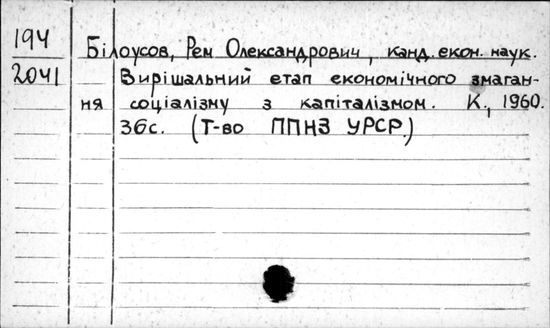 194
2041
Білоусов, Рем Олександрович, канд. екон. наук.
Вирішальний етап економічного змаган-
ня соціалізму з капіталізмом. К., 1960.
36с. (Т-во ППНЗ УРСР.)